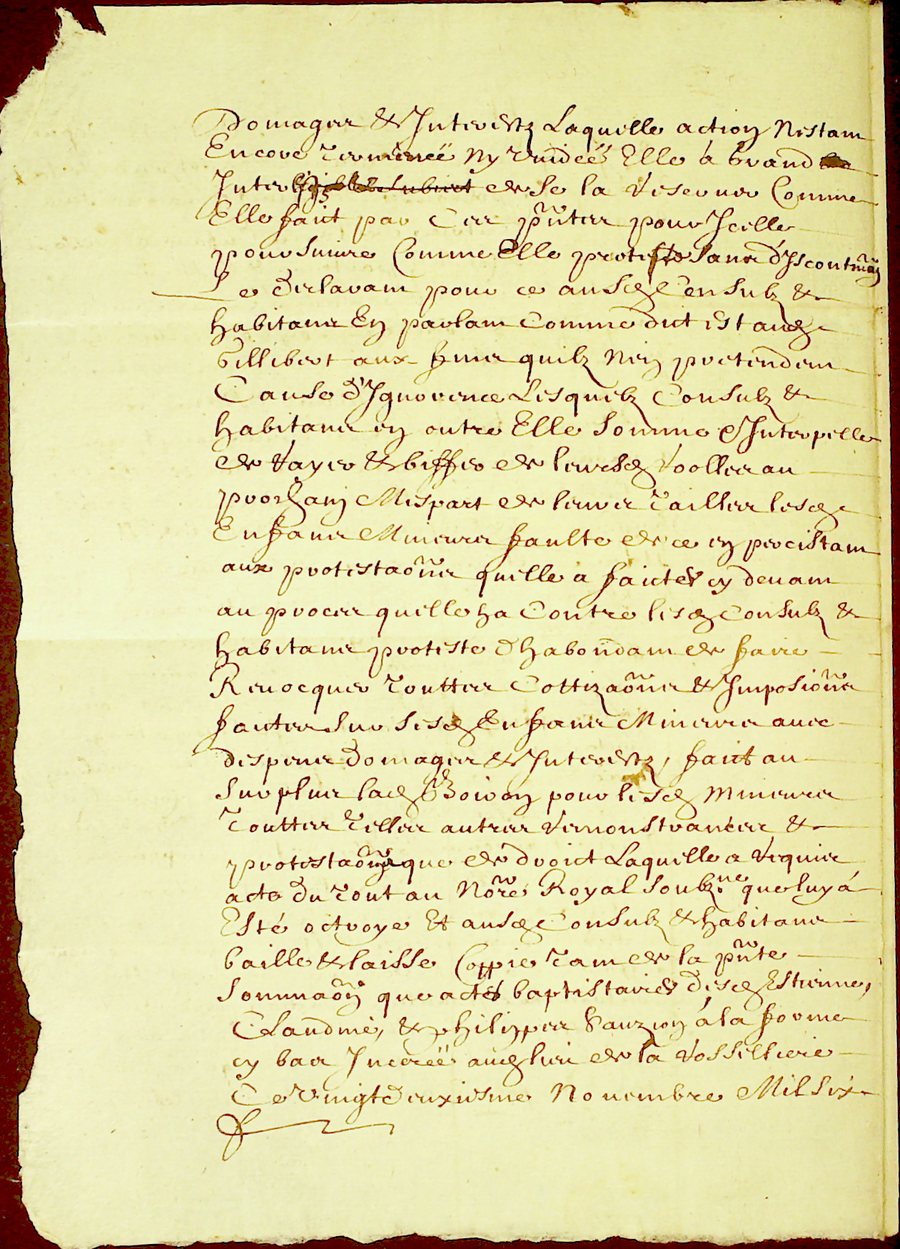 Domages & Interestz Laquelle action Nestant
Encore Terminée Ny Vuidée Elle a Grand
Inter de se la Reserver Comme
Elle faict par Ces pñtes pour Icelle
poursuivre Comme Elle proteste Sans discontinuãõn
Le declarant pour ce ausdz Consulz &
habitans En parlant Comme dict est audz
Gillibert aux fins quilz Nen pretendent
Cause d'Ignorence Lesquelz Consulz &
habitans en outre Elle Somme & Interpelle
de Rayer & biffer de leursdz Roolles au
prochain Mespart de leurs Tailles lesdz
Enfans Mineurs faulte de ce en percistant
aux protestaõns quelle a faictes cy devant
au proces quelle ha Contre lesdz Consulz &
habitans proteste d'habondant de faire
Revocquer Touttes Cottizaõns & Imposiõns
faictes Sur sesdz Enfans Mineurs avec
despens domages & Interestz, faict au
Surplus ladz Boiron pour lesdz Mineurs
Touttes Telles autres Remonstrances &
protestaõns que de droict Laquelle a Requis
acte du Tout au No.re Royal Soubz.né que luy a
Esté octroyé Et ausdz Consulz & habitans
baillé & laissé Coppie Tant de la pñte
Sommaõn que actes baptistaires desdz Estienne,
Claudine, & philippes Sauzion a la forme
cy bas Inserée audz lieu de la Rossilliere
Ce Vingt deuxiesme Novembre Mil Six